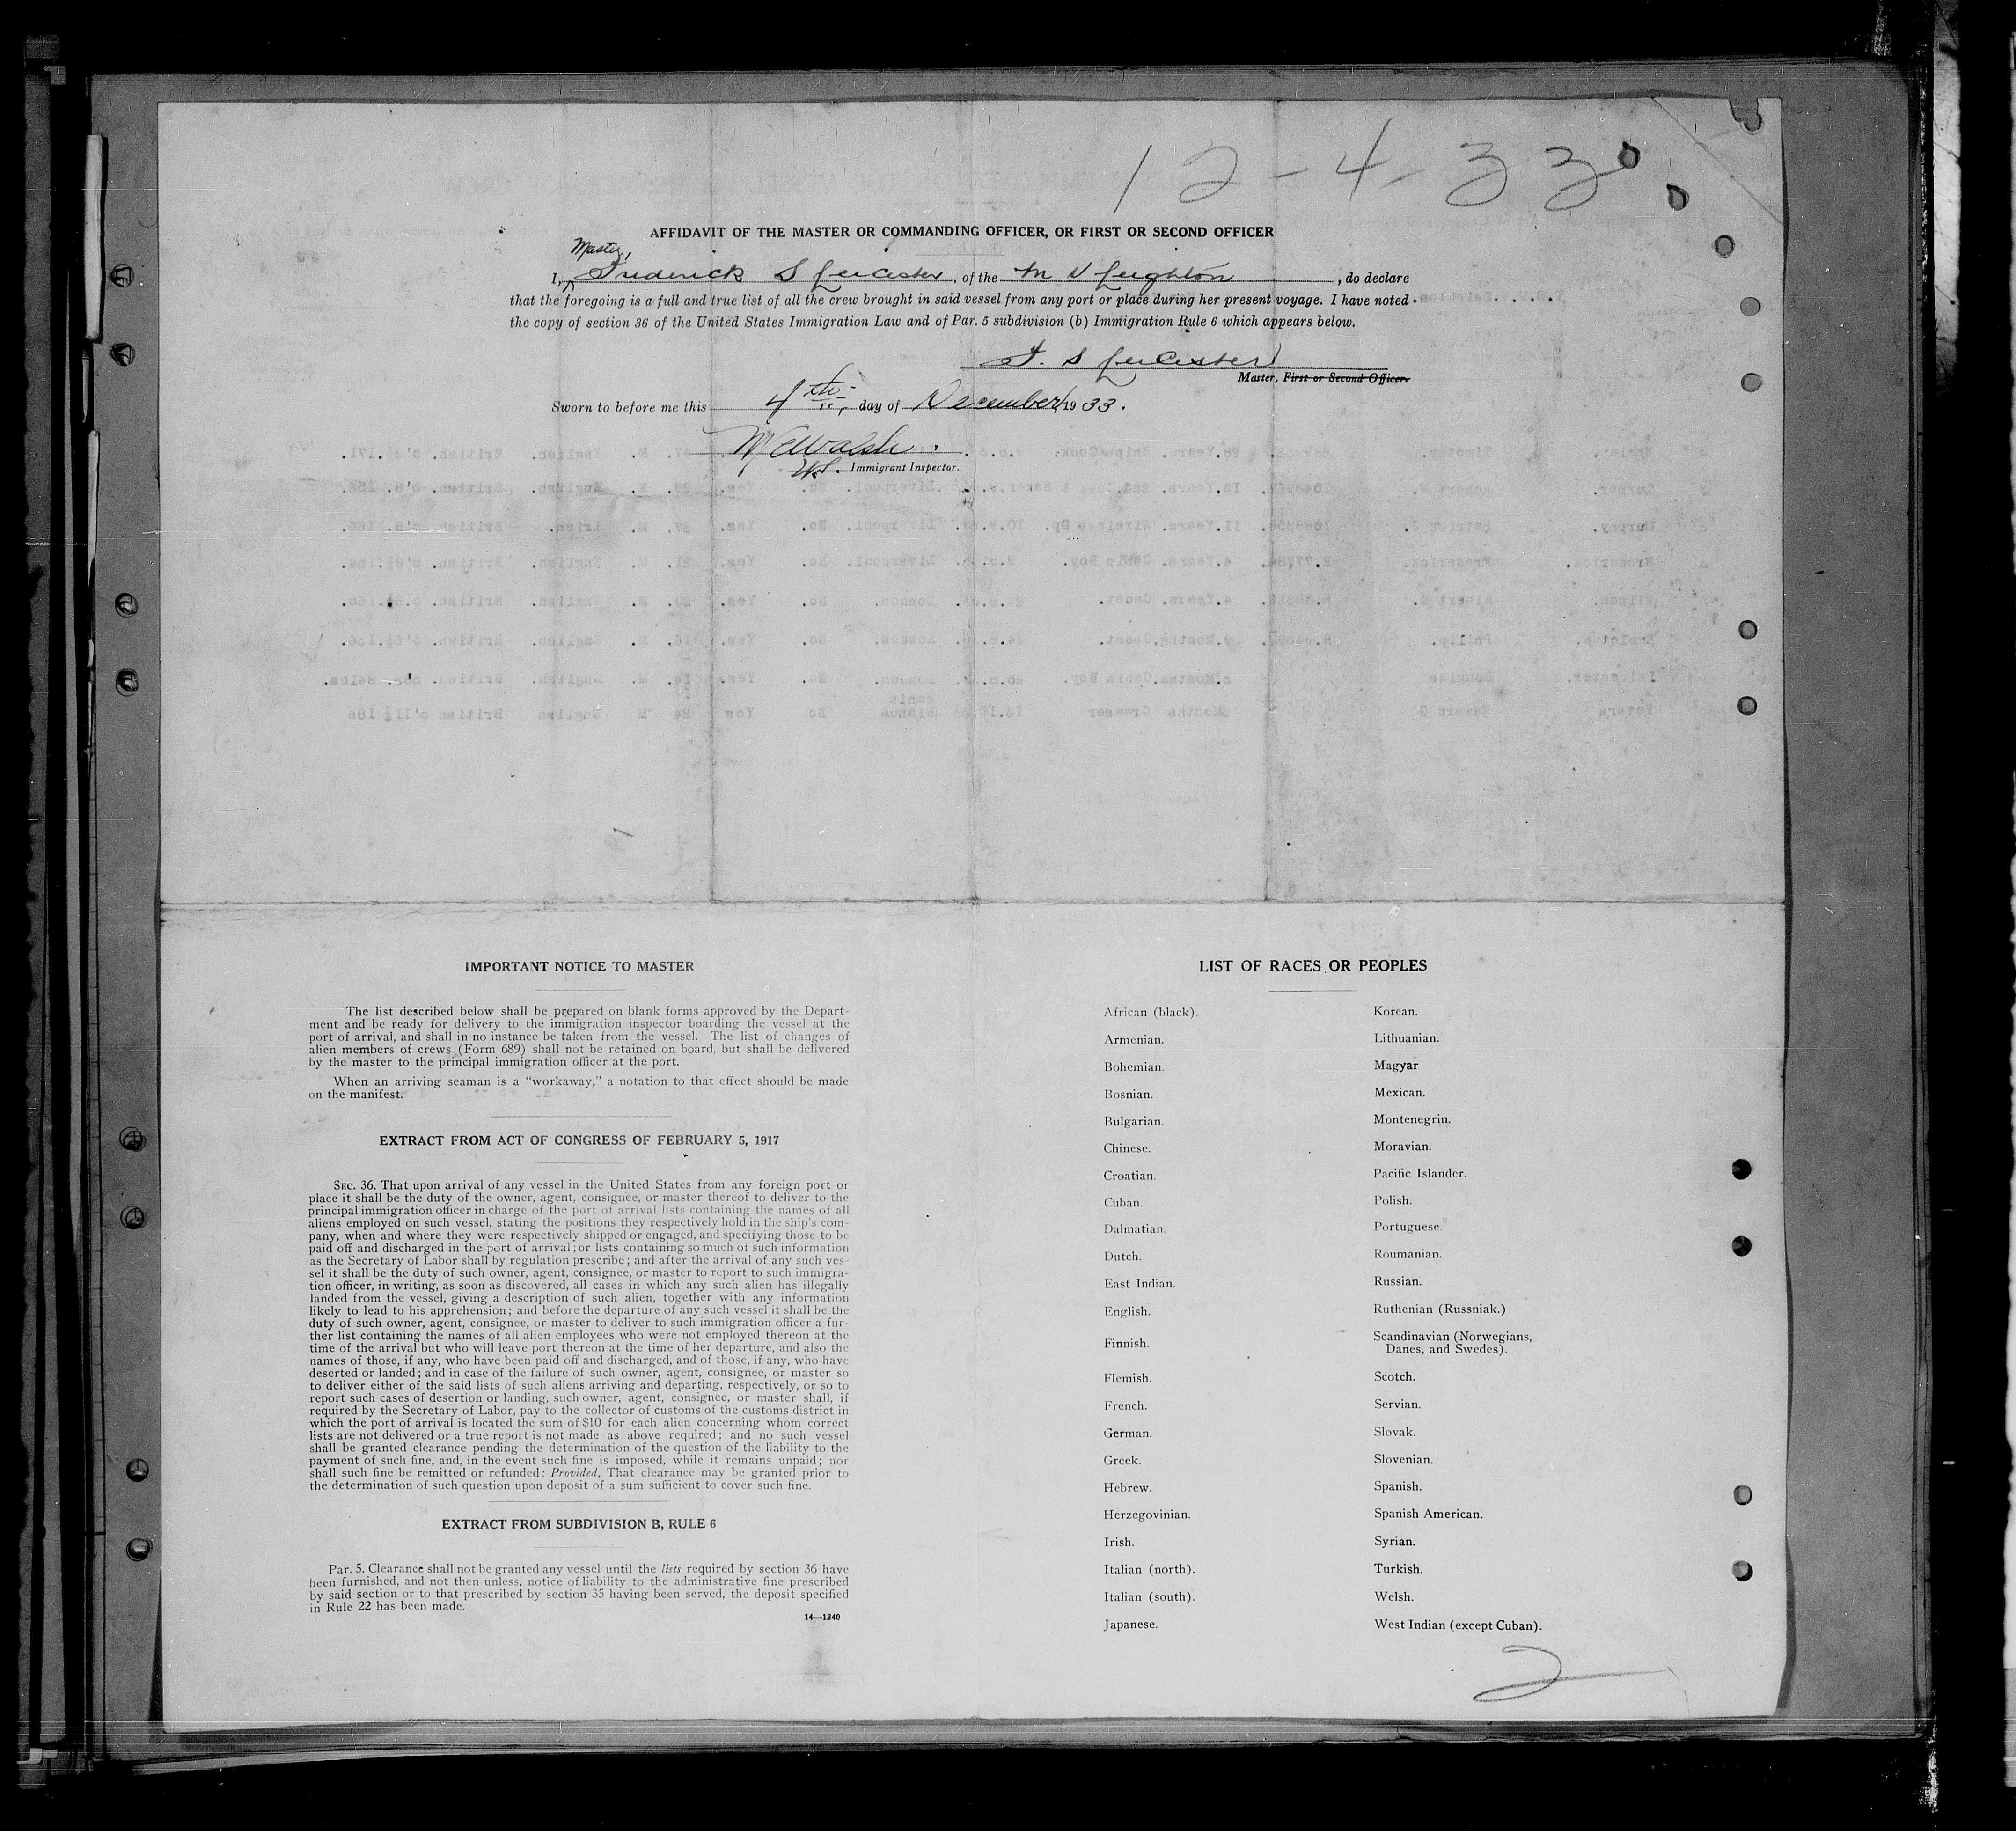 12-4-33
AFFIDAVIT OF THE MASTER OR COMMANDING OFFICER, OR FIRST OR SECOND OFFICER
Master,
I, Frederick S Leicester, of the M V Leighton, do declare
that the foregoing is a full and true list of all the crew brought in said vessel from any port or place during her present voyage. I have noted
the copy of section 36 of the United States Immigration Law and of Par. 5 subdivision (b) Immigration Rule 6 which appears below.
F. S Leicester
Master, First or Second Officer.
Sworn to before me this 4th day of December, 1933.
Walsh
Immigrant Inspector.
IMPORTANT NOTICE TO MASTER
The list described below shall be prepared on blank forms approved by the Depart-
ment and be ready for delivery to the immigration inspector boarding the vessel at the
port of arrival, and shall in no instance be taken from the vessel. The list of changes of
alien members of crews (Form 689) shall not be retained on board, but shall be delivered
by the master to the principal immigration officer at the port.
When an arriving seaman is a “workaway,” a notation to that effect should be made
on the manifest.
EXTRACT FROM ACT OF CONGRESS OF FEBRUARY 5, 1917
SEC. 36. That upon arrival of any vessel in the United States from any foreign port or
place it shall be the duty of the owner, agent, consignee, or master thereof to deliver to the
principal immigration officer in charge of the port of arrival lists containing the names of all
aliens employed on such vessel, stating the positions they respectively hold in the ship's com-
pany, when and where they were respectively shipped or engaged, and specifying those to be
paid off and discharged in the port of arrival; or lists containing so much of such information
as the Secretary of Labor shall by regulation prescribe; and after the arrival of any such ves-
sel it shall be the duty of such owner, agent, consignee, or master to report to such immigra-
tion officer, in writing, as soon as discovered, all cases in which any such alien has illegally
landed from the vessel, giving a description of such alien, together with any information
likely to lead to his apprehension; and before the departure of any such vessel it shall be the
duty of such owner, agent, consignee, or master to deliver to such immigration officer a fur-
ther list containing the names of all alien employees who were not employed thereon at the
time of the arrival but who will leave port thereon at the time of her departure, and also the
names of those, if any, who have been paid off and discharged, and of those, if any, who have
deserted or landed; and in case of the failure of such owner, agent, consignee, or master so
to deliver either of the said lists of such aliens arriving and departing, respectively, or so to
report such cases of desertion or landing, such owner, agent, consignee, or master shall, if
required by the Secretary of Labor, pay to the collector of customs of the customs district in
which the port of arrival is located the sum of $10 for each alien concerning whom correct
lists are not delivered or a true report is not made as above required; and no such vessel
shall be granted clearance pending the determination of the question of the liability to the
payment of such fine, and, in the event such fine is imposed, while it remains unpaid; nor
shall such fine be remitted or refunded: Provided, That clearance may be granted prior to
the determination of such question upon deposit of a sum sufficient to cover such fine.
EXTRACT FROM SUBDIVISION B, RULE 6
Par. 5. Clearance shall not be granted any vessel until the lists required by section 36 have
been furnished, and not then unless, notice of liability to the administrative fine prescribed
by said section or to that prescribed by section 35 having been served, the deposit specified
in Rule 22 has been made.
14—1240
LIST OF RACES OR PEOPLES
African (black).
Armenian.
Bohemian.
Bosnian.
Bulgarian.
Chinese.
Croatian.
Cuban.
Dalmatian.
Dutch.
East Indian.
English.
Finnish.
Flemish.
French.
German.
Greek.
Hebrew.
Herzegovinian.
Irish.
Italian (north).
Italian (south).
Japanese.
Korean.
Lithuanian.
Magyar
Mexican.
Montenegrin.
Moravian.
Pacific Islander.
Polish.
Portuguese.
Roumanian.
Russian.
Ruthenian (Russniak.)
Scandinavian (Norwegians,
Danes, and Swedes).
Scotch.
Servian.
Slovak.
Slovenian.
Spanish.
Spanish American.
Syrian.
Turkish.
Welsh.
West Indian (except Cuban).
2